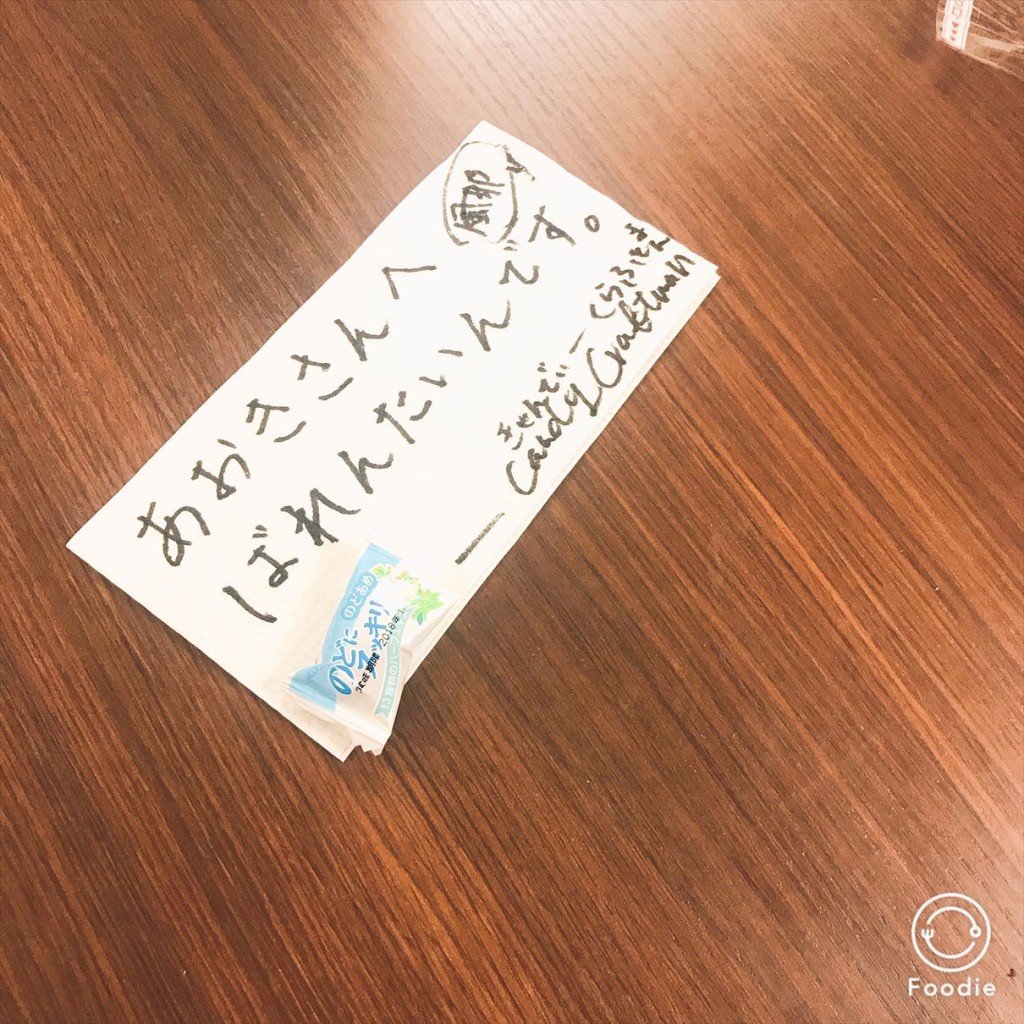 あおきさんへ
ばれんたいんです。
きゃんでぃーくらふとまん
Candy Craftman
のどあめ
のどに
スッキリ
13種類のハーブ
Foodie